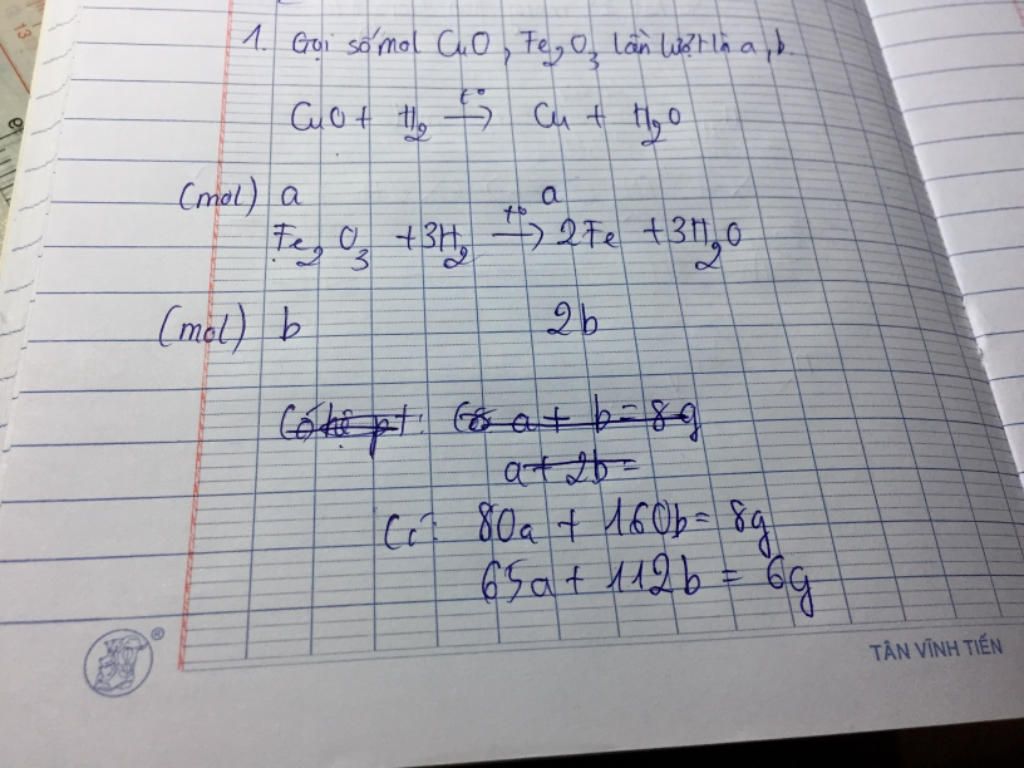 1. Gọi số mol CuO, Fe2O3 lần lượt là a, b.
CuO + H2 t°→ Cu + H2O
(mol) a a
Fe2O3 + 3H2 t°→ 2Fe + 3H2O
(mol) b 2b
Có hệ pt: a + b = 8g
a + 2b =
80a + 160b = 8g
65a + 112b = 6g
®
TÂN VĨNH TIẾN
13